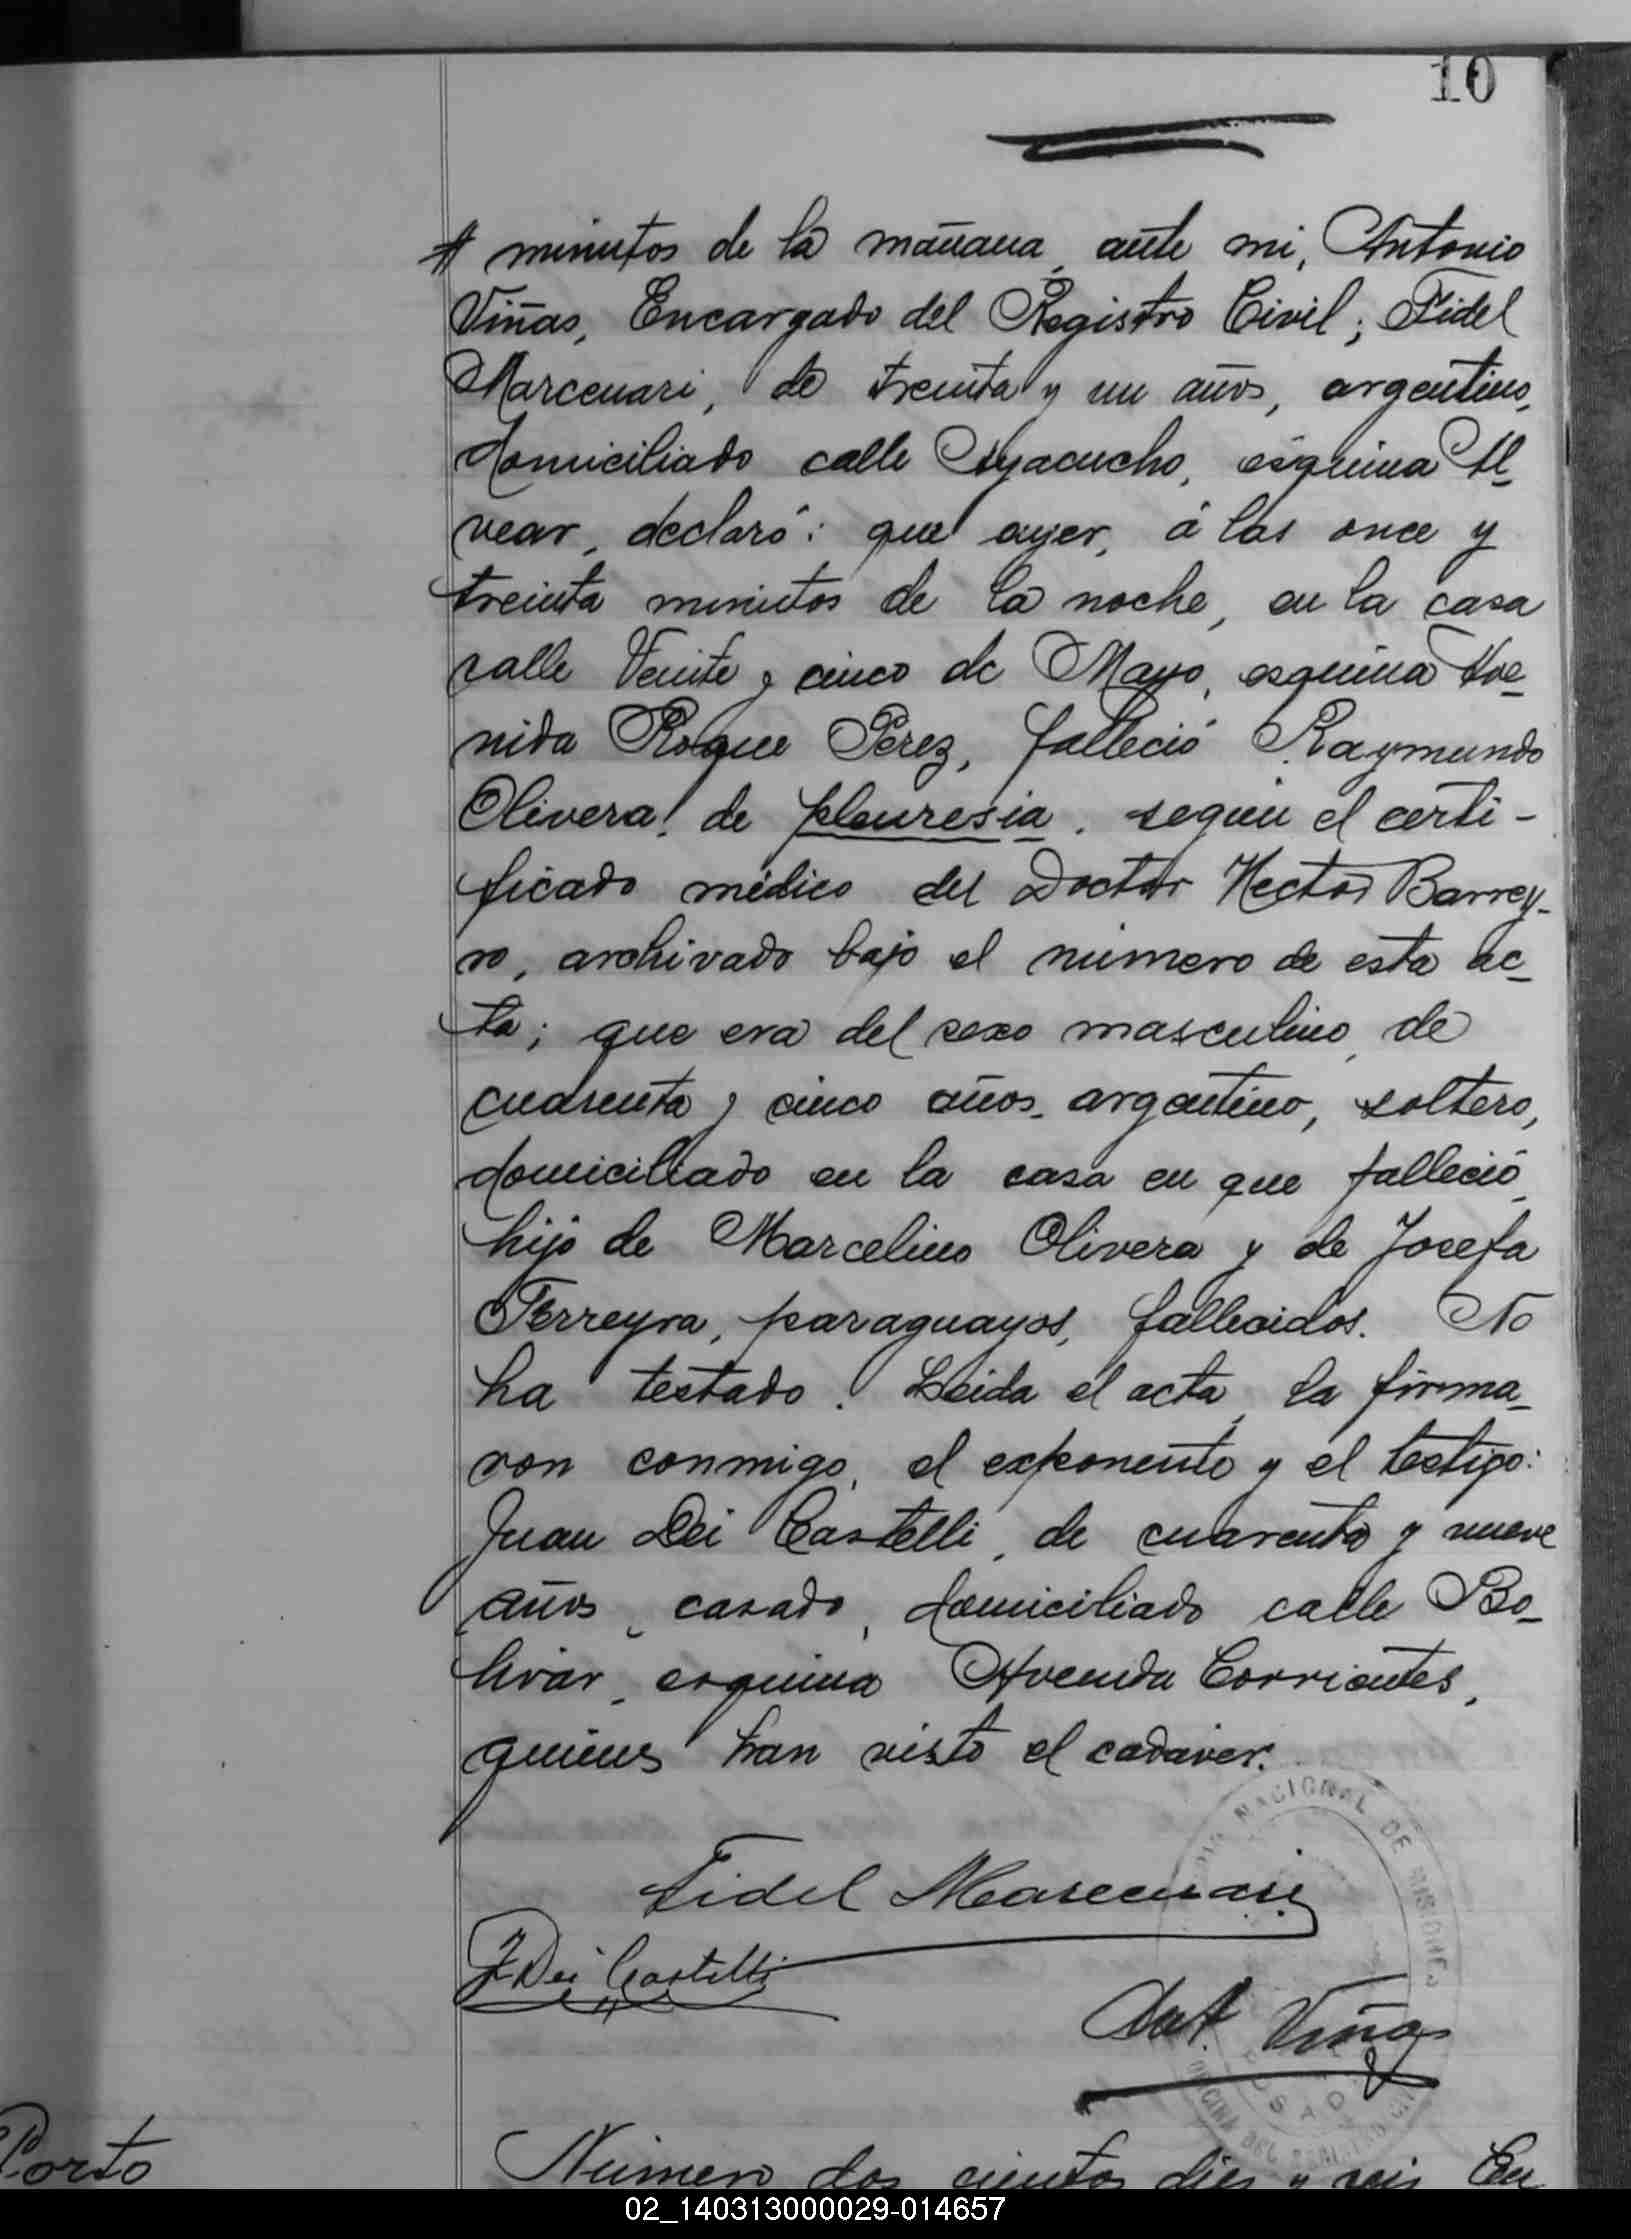 10
minutos de la mañana, ante mi, Antonio
Viñas, Encargado del Registro Civil; Fidel
Marcenari, de treinta y un años, argentino,
domiciliado calle Ayacucho, esquina Al-
vear, declaró: que ayer, á las once y
treinta minutos de la noche, en la casa
calle Veinte y cinco de Mayo, esquina Ave-
nida Roque Perez, falleció Raymundo
Olivera, de pleuresia, según el certi-
ficado médico del Doctor Hector Barrey-
ro, archivado bajo el número de esta ac-
ta; que era del sexo masculino, de
cuarenta y cinco años, argentino, soltero,
domiciliado en la casa en que falleció,
hijo de Marcelino Olivera y de Josefa
Ferreyra, paraguayos, fallecidos. No
ha testado. Leida el acta, la firma-
ron conmigo, el exponente y el testigo:
Juan Dei Castelli, de cuarenta y nueve
años, casado, domiciliado calle Bo-
livar, esquina Avenida Corrientes,
quienes han visto el cadáver.
NACIONAL DE MISIONES
Fidel Marcenari
J Dei Castelli
Ant. Viñas
POSADAS
OFICINA DEL REGISTRO CIVIL
Porto
Número dos cientos diez y seis. En
02_140313000029-014657